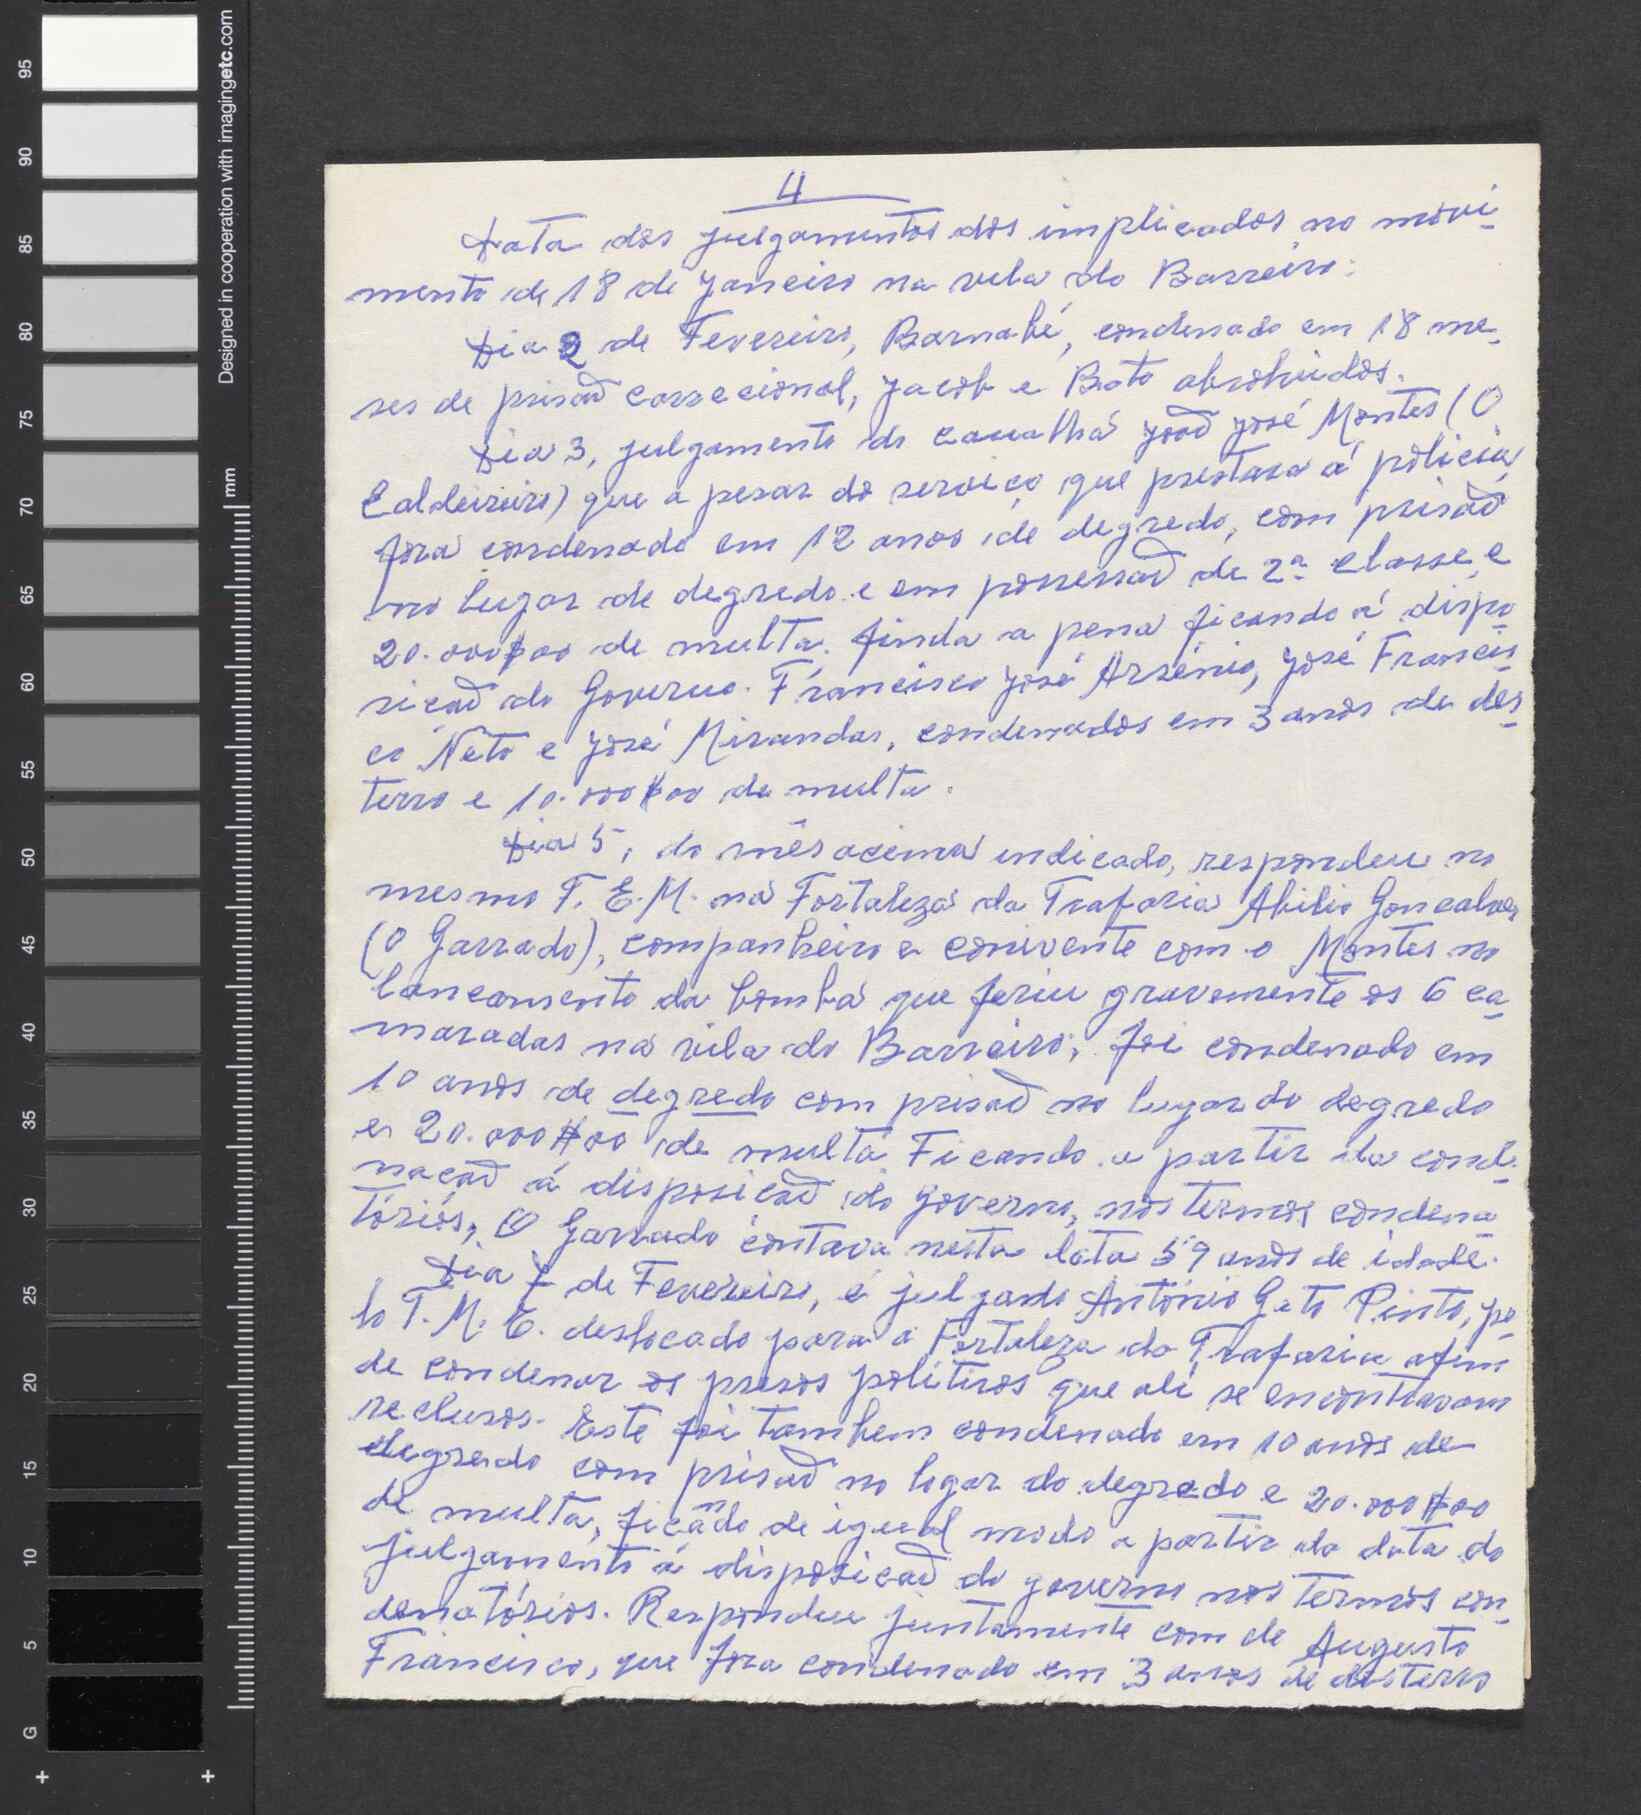 4
Data dos julgamentos dos implicados no movi-
mento de 18 de Janeiro na vila do Barreiro:
Dia 2 de Fevereiro, Barnabé, condenado em 18 me-
ses de prisaõ correcional, Jacob e Bato absolvidos.
Dia 3, julgamento do canalha Joaõ José Montes (O
Caldeireiro) que a pesar do serviço que prestara á policia,
fora condenado em 12 anos de degredo, com prisaõ
no lugar de degredo e em possessaõ de 2ª classe, e
20.000$00 de multa. finda a pena ficando á dispo-
sicaõ do Governo. Francisco José Arsénio, José Francis-
co Neto e José Mirandas, condenados em 3 anos de des-
terro e 10.000$00 de multa.
Dia 5, do mês acima indicado, respondeu no
mesmo T. E. M. na Fortaleza da Trafaria Abilio Goncalves
(O Garrado), companheiro e conivente com o Montes no
lancamento da bomba que feriu gravemente os 6 ca-
maradas na vila do Barreiro, foi condenado em
10 anos de degredo com prisaõ no lugar do degredo
e 20.000$00 de multa Ficando a partir da conde-
nacaõ á disposicaõ do governo, nos termos condena-
tórios, O Garrado contava nesta data 59 anos de idade.
Dia de Fevereiro, é julgado António Gato Pinto, pe-
lo T. M. E. deslocado para a Fortaleza da Trafaria afim
de condenar os presos politicos que ali se encontravam
reclusos. Este foi tambem condenado em 10 anos de
degredo com prisaõ no logar do degredo e 20.000$00
de multa, ficando de igual modo a partir da data do
julgamento á disposicaõ do governo nos termos con-
denatórios. Respondeu juntamente com de Augusto
Francisco, que fora condenado em 3 anos de desterro
95
90
85
80
75
70
65
60
55
50
45
40
35
30
25
20
15
10
5
G
mm
Designed in cooperation with imagingetc.com